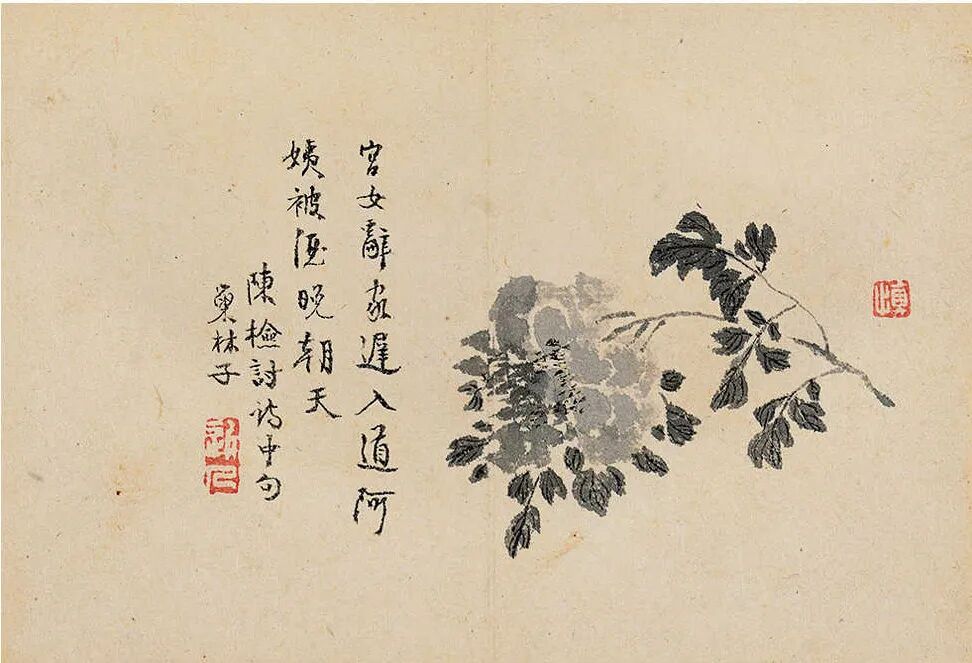 慎
宮女辭家遲入道阿
姨被酒晚朝天
陳檢討詩中句
巢林子
近人